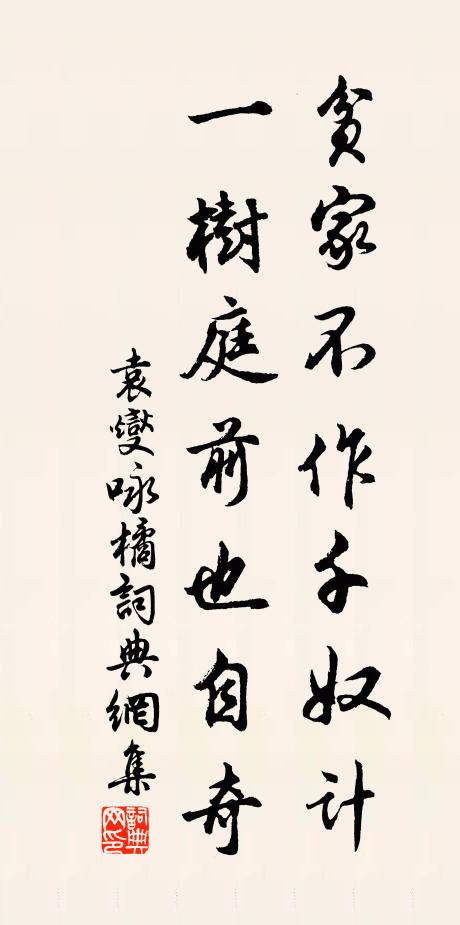 貧家不作千奴計
一樹庭前也自奇
袁燮咏橘詞典網集
詞典网印